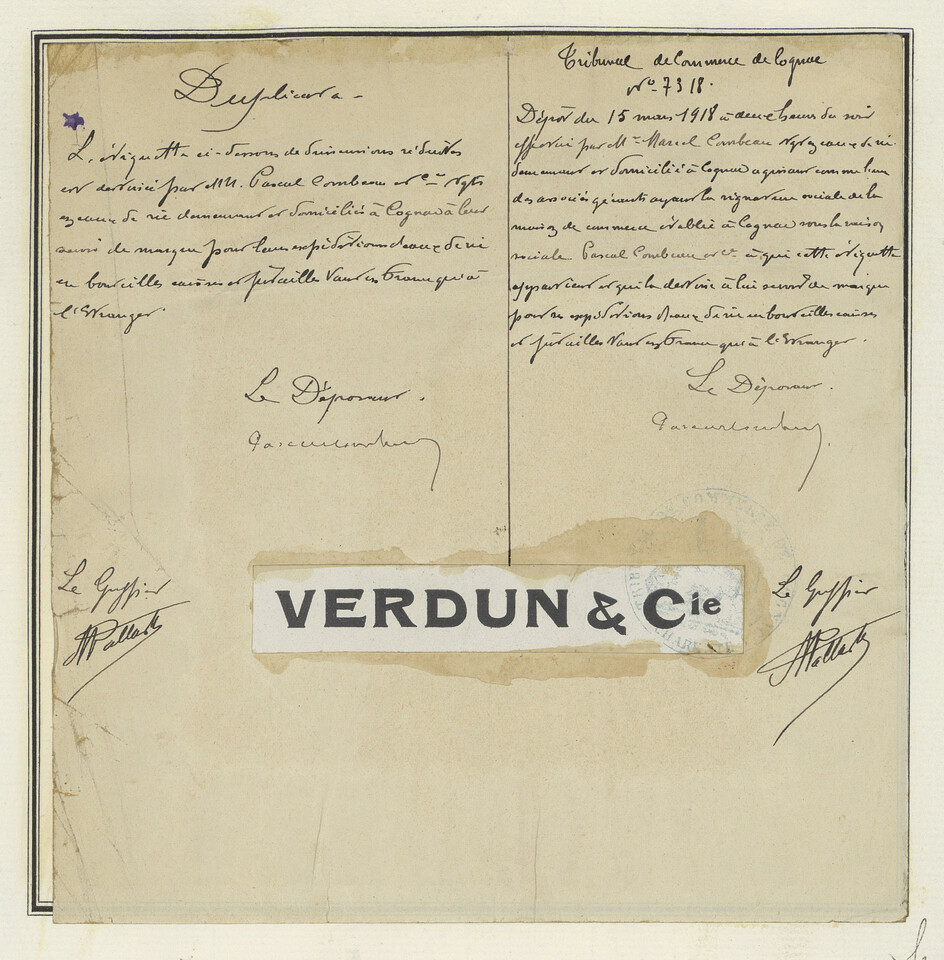 Duplicata -
L'étiquette ci-dessous de dimensions réduites
est destinée par MM. Pascal Combeau et Cie Ngts
en eaux de vie demeurant et domiciliés à Cognac à leur
servir de marque pour leurs expéditions d'eaux de vie
en bouteilles caisses et futailles tant en France qu'à
l'Etranger.
Le Déposant.
Pascal Combeau
Le Greffier
Tribunal de Commerce de Cognac
No 7318.
Dépôt du 15 mars 1918 à deux heures du soir
effectué par Mr Marcel Combeau Ngt en eaux de vie
demeurant et domicilié à Cognac agissant comme l'un
des associés gérants ayant la signature sociale de la
maison de commerce établie à Cognac sous la raison
sociale Pascal Combeau et Cie à qui cette étiquette
appartient et qui la destine à lui servir de marque
pour ses expéditions d'eaux de vie en bouteilles caisses
et futailles tant en France qu'à l'Etranger.
Le Déposant.
Pascal Combeau
Le Greffier
VERDUN & Cie